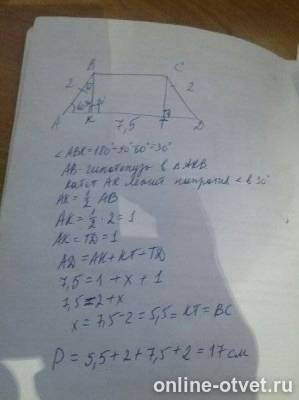 B C
2 2
60°
A K 7,5 T D
∠ABK=180°-90°-60°=30°
AB-гипотенуза в ΔAKB
катет AK лежит напротив ∠ в 30°
AK = 1/2 AB
AK = 1/2 · 2 = 1
AK = TD = 1
AD = AK + KT + TD
7,5 = 1 + x + 1
7,5 = 2 + x
x = 7,5 - 2 = 5,5 = KT = BC
P = 5,5 + 2 + 7,5 + 2 = 17 см
online-otvet.ru